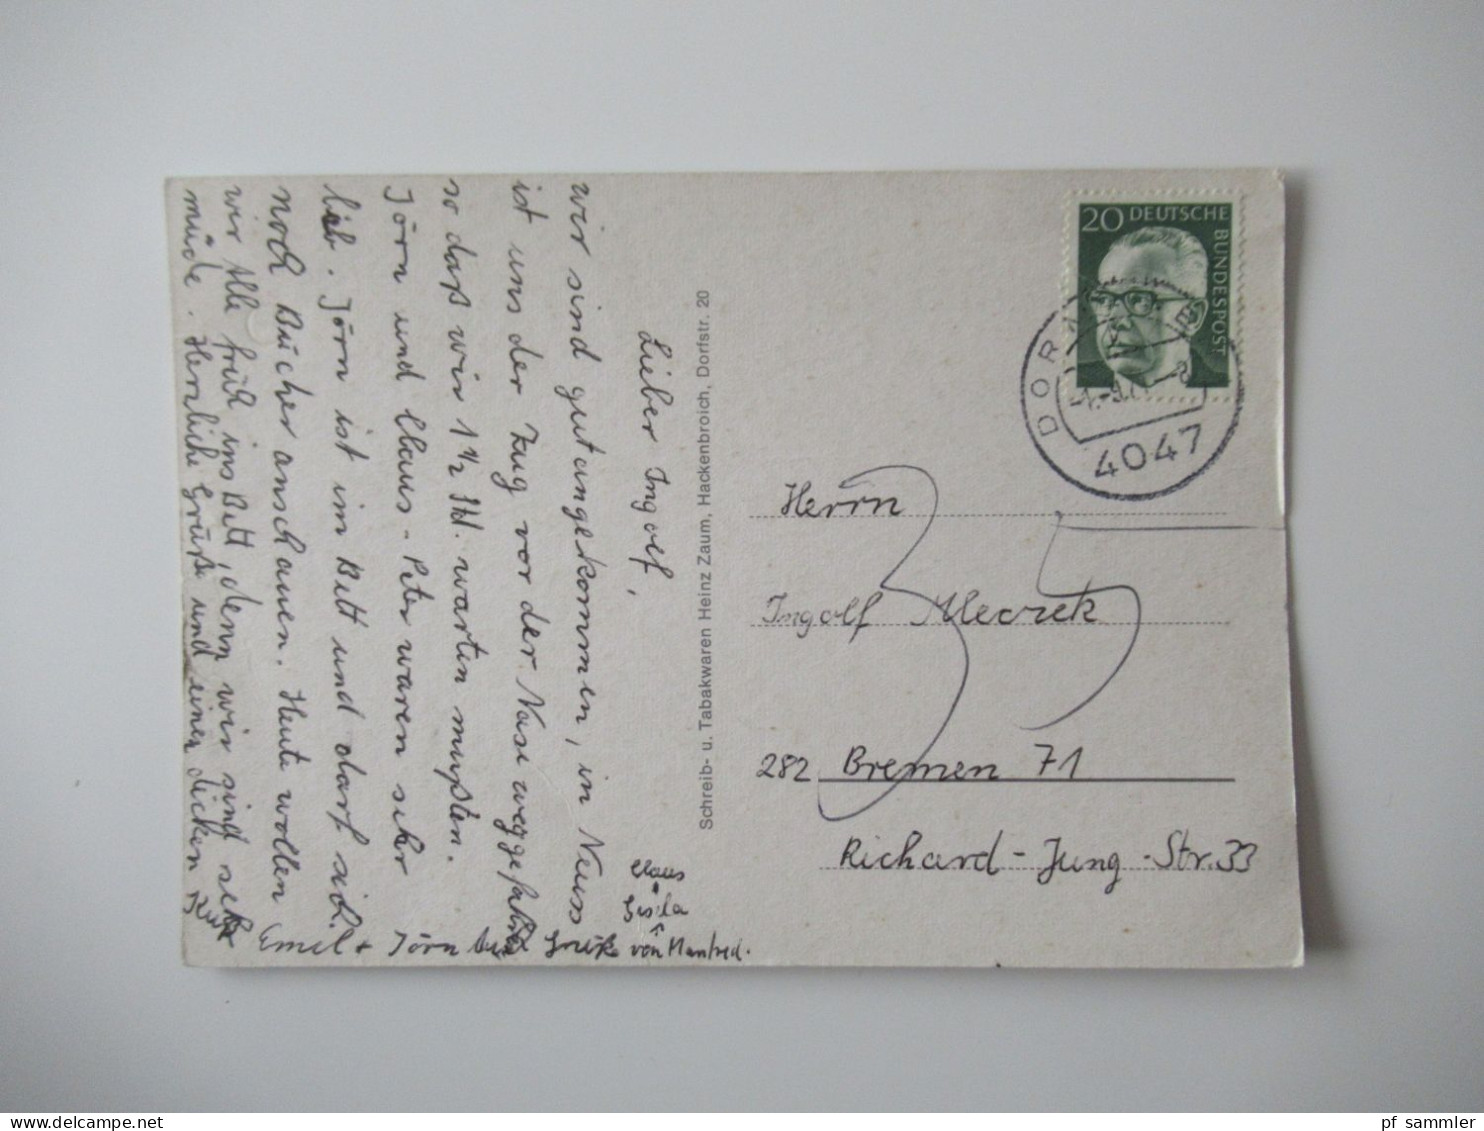 Lieber Ingolf,
wir sind gut angekommen, in Neuss
ist uns der Zug vor der Nase weggefahren
so daß wir 1 1/2 Std. warten mußten.
Jörn und Claus-Peter waren sehr
lieb. Jörn ist im Bett und darf sich
noch Bücher anschauen. Heute wollen
wir alle früh ins Bett, denn wir sind sehr
müde. Herzliche Grüße und einen dicken
Kuß
Emil + Jörn
von Manfred.
Claus
Gisela
Schreib- u. Tabakwaren Heinz Zaum, Hackenbroich, Dorfstr. 20
20 DEUTSCHE
BUNDESPOST
4047
Herrn
Ingolf
35
282 Bremen 71
Richard-Jung-Str. 33
pf sammler